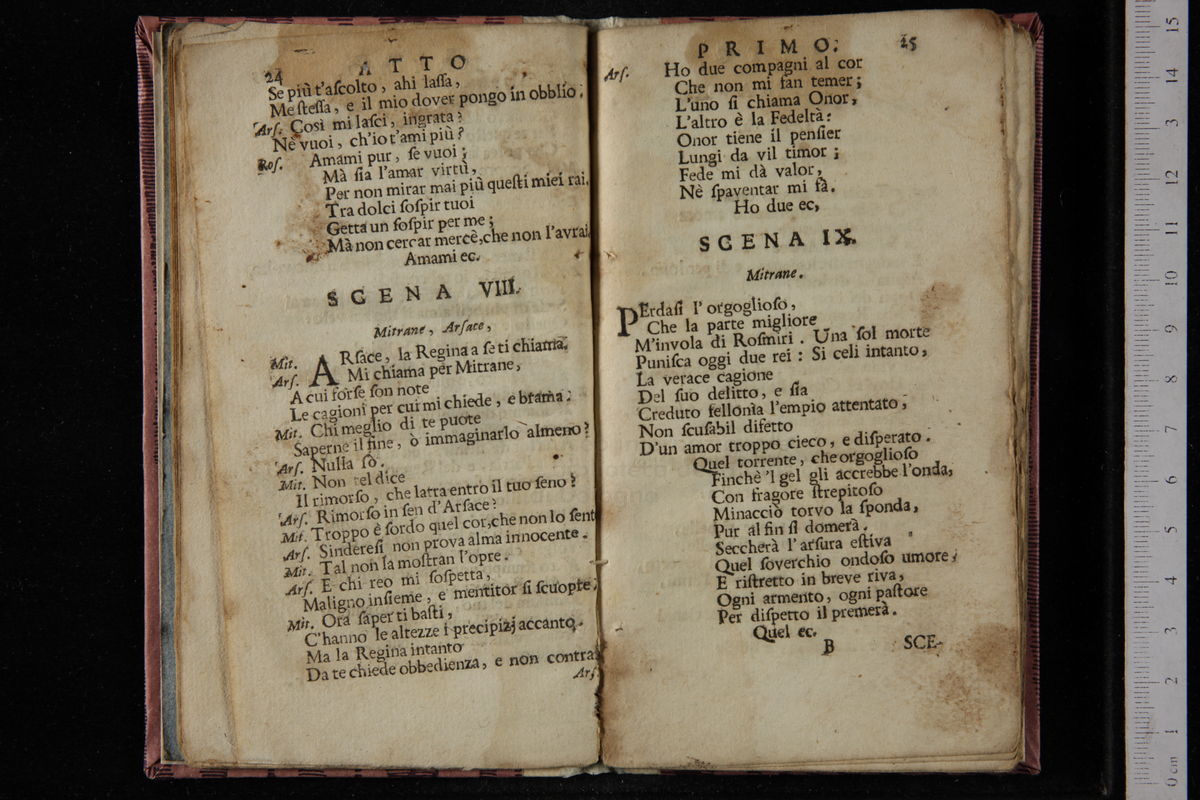 24 ATTO
Se più t'aſcolto, ahi laſſa,
Me ſteſſa, e il mio dover pongo in obblio.
Arſ. Così mi laſci, ingrata?
Nè vuoi, ch'io t'ami più?
Roſ. Amami pur, ſe vuoi;
Mà ſia l'amar virtù,
Per non mirar mai più queſti miei rai.
Tra dolci ſoſpir tuoi
Getta un ſoſpir per me;
Mà non cercar mercè, che non l'avrai.
Amami ec.
SCENA VIII.
Mitrane, Arſace,
Mit. ARſace, la Regina a ſe ti chiama.
Arſ. Mi chiama per Mitrane,
A cui forſe ſon note
Le cagioni per cui mi chiede, e brama.
Mit. Chi meglio di te puote
Saperne il fine, ò immaginarlo almeno?
Arſ. Nulla sò.
Mit. Non tel dice
Il rimorſo, che latra entro il tuo ſeno?
Arſ. Rimorſo in ſen d'Arſace?
Mit. Troppo è ſordo quel cor, che non lo ſent
Arſ. Sindereſi non prova alma innocente.
Mit. Tal non la moſtran l'opre.
Arſ. E chi reo mi ſoſpetta,
Maligno inſieme, e mentitor ſi ſcuopre.
Mit. Ora ſaper ti baſti,
C'hanno le altezze i precipizj accanto.
Ma la Regina intanto
Da te chiede obbedienza, e non contra
Arſ.
PRIMO. 25
Arſ. Ho due compagni al cor
Che non mi fan temer;
L'uno ſi chiama Onor,
L'altro è la Fedeltà:
Onor tiene il penſier
Lungi da vil timor;
Fede mi dà valor,
Nè ſpaventar mi fà.
Ho due ec,
SCENA IX.
Mitrane.
PErdaſi l'orgoglioſo,
Che la parte migliore
M'invola di Roſmiri. Una ſol morte
Puniſca oggi due rei: Si celi intanto,
La verace cagione
Del ſuo delitto, e ſia
Creduto fellonìa l'empio attentato,
Non ſcuſabil difetto
D'un amor troppo cieco, e diſperato.
Quel torrente, che orgoglioſo
Finchè 'l gel gli accrebbe l'onda,
Con fragore ſtrepitoſo
Minacciò torvo la ſponda,
Pur al fin ſi domerà.
Seccherà l'arſura eſtiva
Quel ſoverchio ondoſo umore,
E riſtretto in breve riva,
Ogni armento, ogni paſtore
Per diſpetto il premerà.
Quel ec.
B SCE-
0 cm 1 2 3 4 5 6 7 8 9 10 11 12 3 14 15